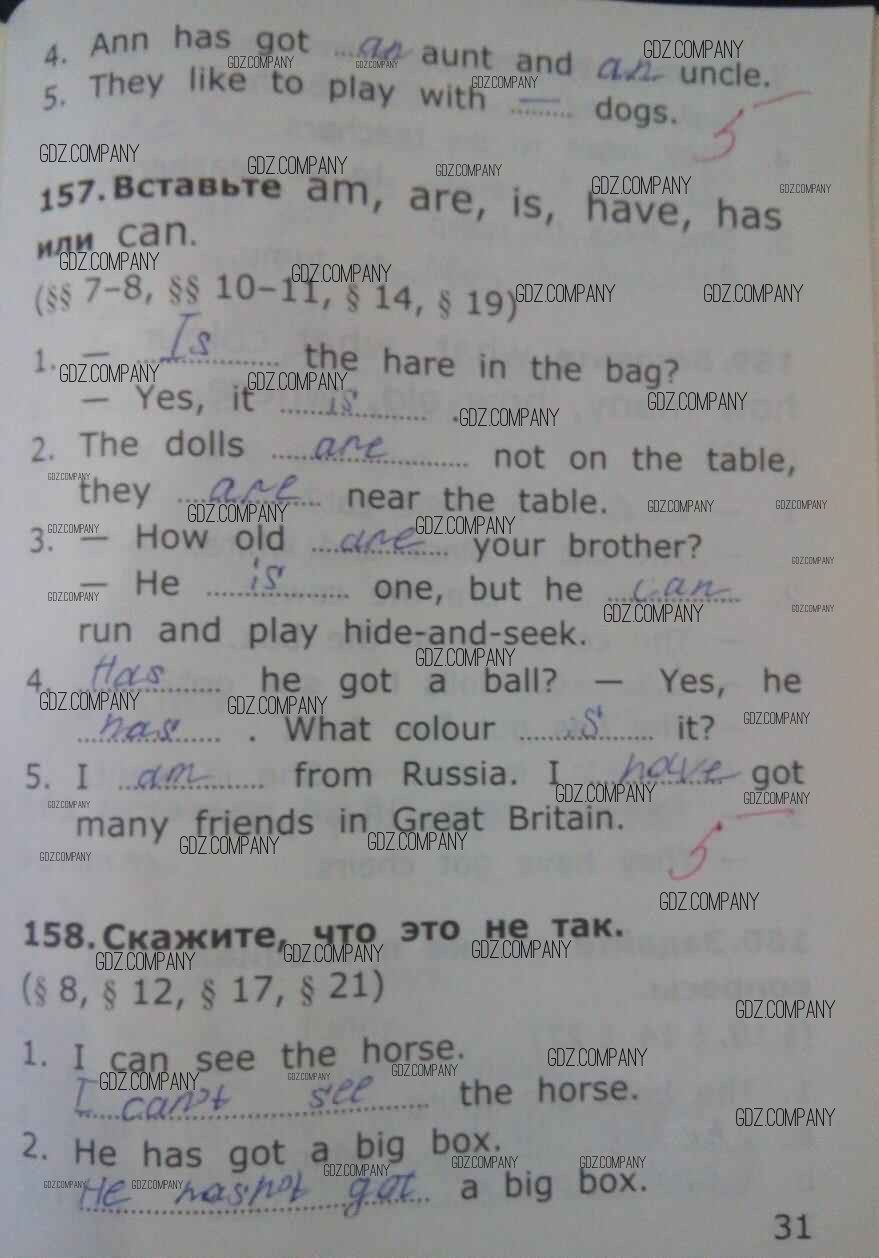 4. Ann has got an aunt and an uncle.
5. They like to play with — dogs.
5-
157. Вставьте am, are, is, have, has
или can.
(§§ 7–8, §§ 10–11, § 14, § 19)
1. — Is the hare in the bag?
— Yes, it is .
2. The dolls are not on the table,
they are near the table.
3. — How old are your brother?
— He is one, but he can
run and play hide-and-seek.
4. Has he got a ball? — Yes, he
has . What colour is it?
5. I am from Russia. I have got
many friends in Great Britain.
5-
158. Скажите, что это не так.
(§ 8, § 12, § 17, § 21)
1. I can see the horse.
I can't see the horse.
2. He has got a big box.
He has not got a big box.
31
GDZ.COMPANY